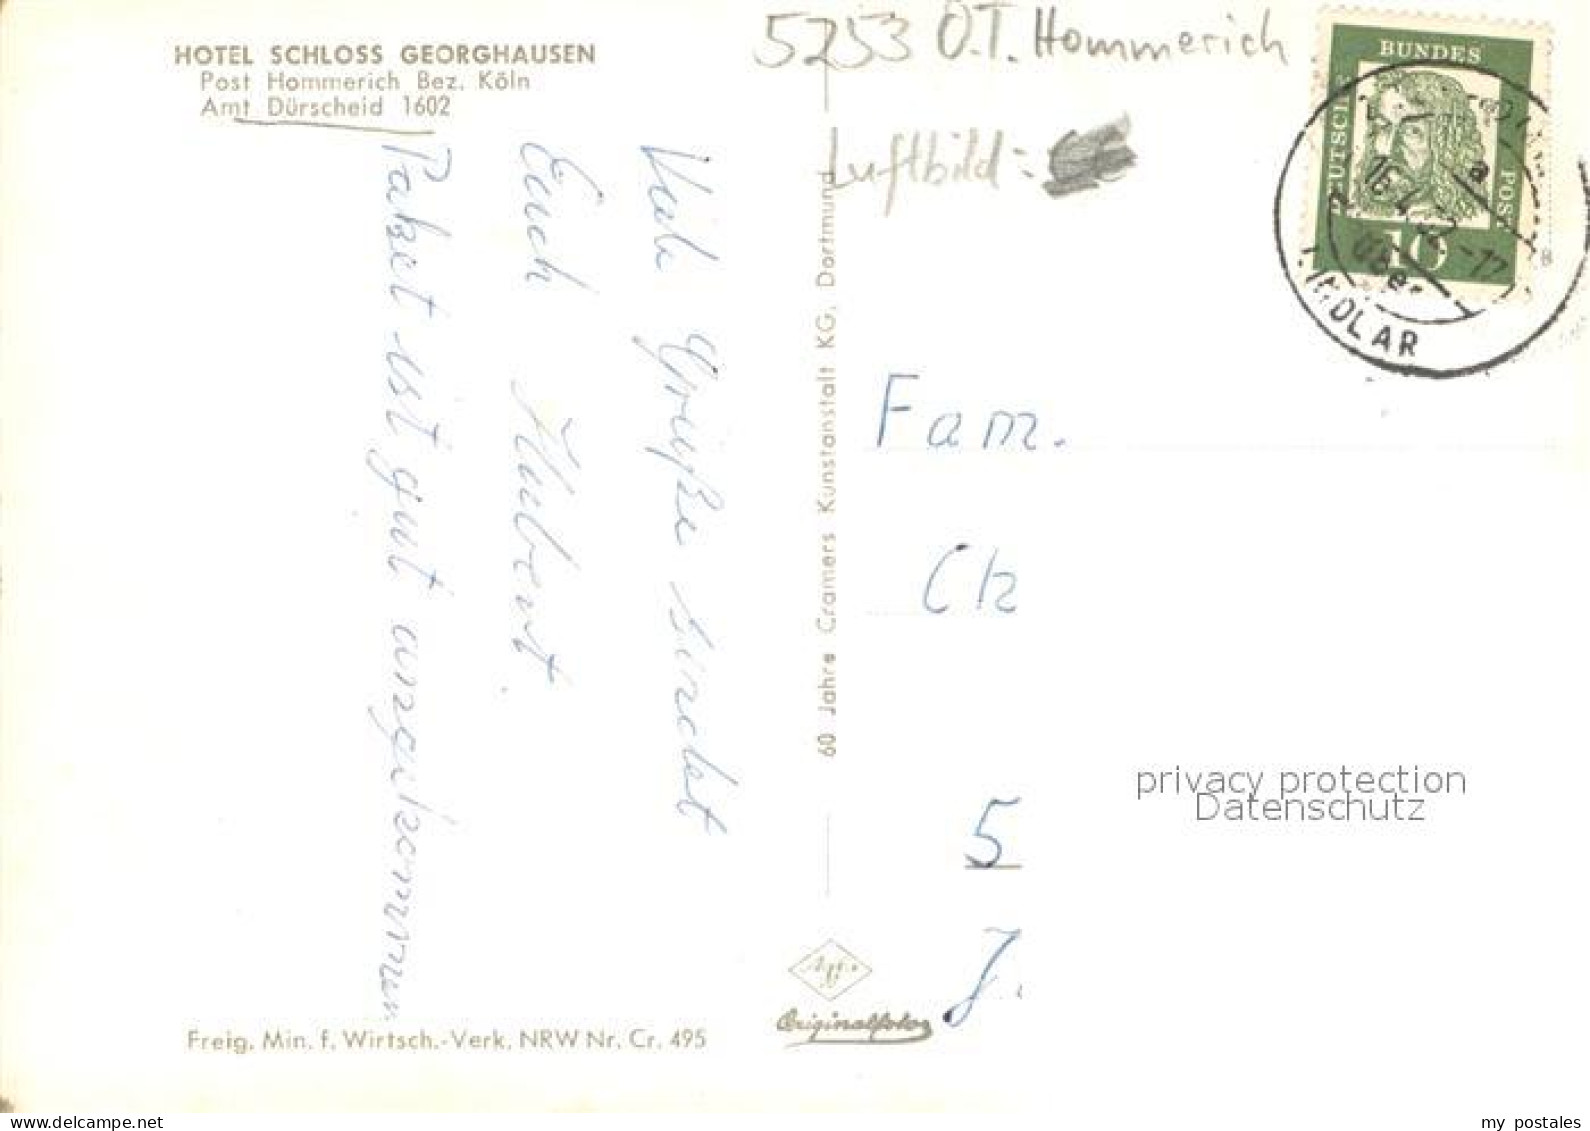 HOTEL SCHLOSS GEORGHAUSEN
Post Hommerich Bez. Köln
Amt Dürscheid 1602
5253 O.T. Hommerich
Luftbild:
Viele Grüße sendet
Euch Hubert.
Paket ist gut angekommen
60 Jahre Cramers Kunstanstalt KG, Dortmund
DEUTSCHE
BUNDES
POST
10
16
a
über
LINDLAR
Fam.
5
J.
privacy protection
Datenschutz
Agfa
Originalfoto
Freig. Min. f. Wirtsch.-Verk. NRW Nr. Cr. 495
www.delcampe.net
my_postales